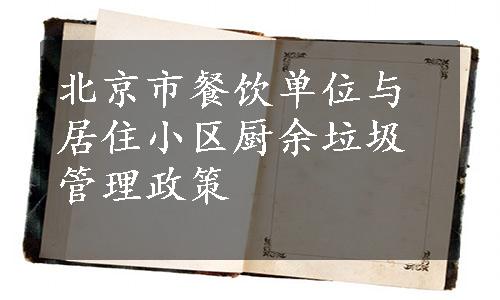 北京市餐饮单位与
居住小区厨余垃圾
管理政策